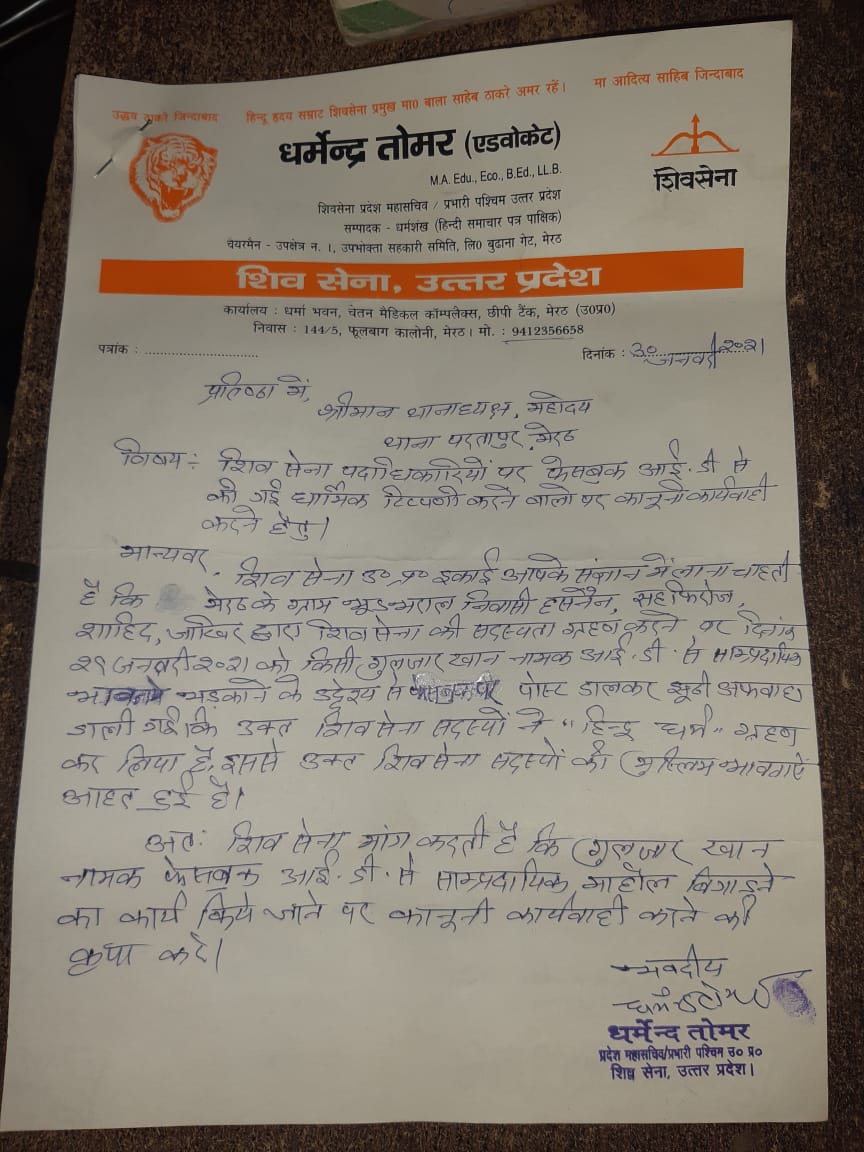 उद्धव ठाकरे जिन्दाबाद हिन्दू हृदय सम्राट शिवसेना प्रमुख मा0 बाला साहेब ठाकरे अमर रहें। मा आदित्य साहिब जिन्दाबाद
धर्मेन्द्र तोमर (एडवोकेट)
M.A. Edu., Eco., B.Ed., LL.B.
शिवसेना प्रदेश महासचिव / प्रभारी पश्चिम उत्तर प्रदेश
सम्पादक - धर्मशंख (हिन्दी समाचार पत्र पाक्षिक)
चेयरमैन - उपक्षेत्र न. 1, उपभोक्ता सहकारी समिति, लि0 बुढाना गेट, मेरठ
शिवसेना
शिव सेना, उत्तर प्रदेश
कार्यालय : धर्मा भवन, चेतन मैडिकल कॉम्पलैक्स, छीपी टैंक, मेरठ (उ0प्र0)
निवास : 144/5, फूलबाग कालोनी, मेरठ। मो. : 9412356658
पत्रांक : ................................
दिनांक : ३० जनवरी २०२१
प्रतिष्ठा में,
श्रीमान थानाध्यक्ष, महोदय
थाना परतापुर, मेरठ
विषय : शिव सेना पदाधिकारियों पर फेसबुक आई.डी से
की गई धार्मिक टिप्पणी करने वालो पर कानूनी कार्यवाही
करने हेतु।
मान्यवर,
शिव सेना उ० प्र० इकाई आपके संज्ञान में लाना चाहती
है कि मेरठ के ग्राम निवासी हसनैन, फिरोज,
शाहिद, जाकिर द्वारा शिव सेना की सदस्यता ग्रहण करने पर दिनांक
२९ जनवरी २०२१ को किसी गुलजार खान नामक आई.डी. से साम्प्रदायिक
भड़काने के उद्देश्य से पोस्ट डालकर झूठी अफवाह
डाली गई कि उक्त शिव सेना सदस्यों ने "हिन्दू धर्म" ग्रहण
कर लिया है, इससे उक्त शिव सेना सदस्यों की मुस्लिम भावनाऐं
आहत हुई है।
अतः शिव सेना मांग करती है कि गुलजार खान
नामक फेसबुक आई.डी. से साम्प्रदायिक माहौल बिगाड़ने
का कार्य किये जाने पर कानूनी कार्यवाही करने की
कृपा करे।
भवदीय
धर्मेन्द तोमर
प्रदेश महासचिव/प्रभारी पश्चिम उ० प्र०
शिव सेना, उत्तर प्रदेश।